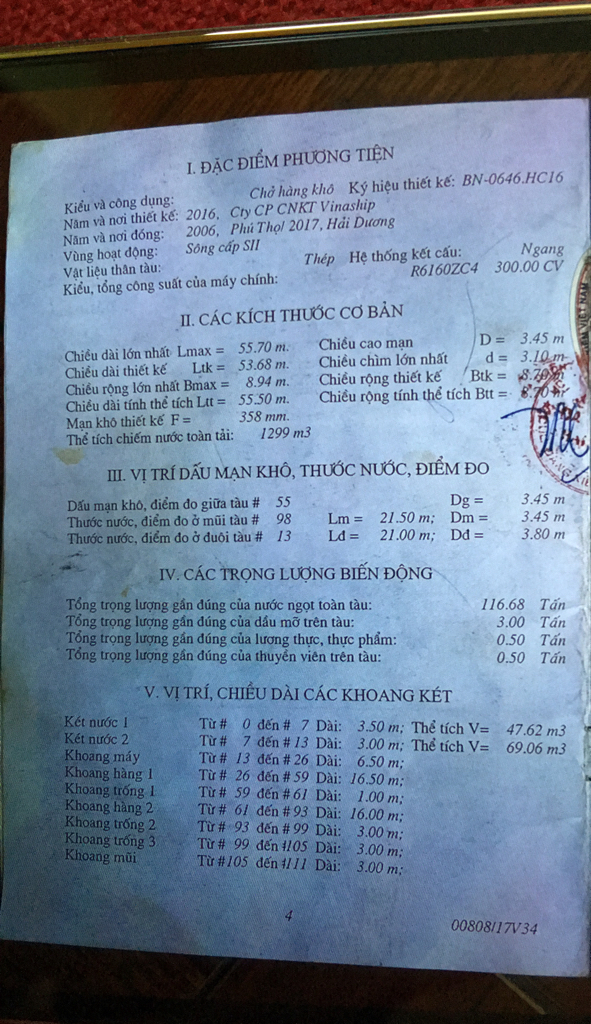 I. ĐẶC ĐIỂM PHƯƠNG TIỆN
Kiểu và công dụng: Chở hàng khô Ký hiệu thiết kế: BN-0646.HC16
Năm và nơi thiết kế: 2016, Cty CP CNKT Vinaship
Năm và nơi đóng: 2006, Phú Thọ/ 2017, Hải Dương
Vùng hoạt động: Sông cấp SII
Vật liệu thân tàu: Thép Hệ thống kết cấu: Ngang
Kiểu, tổng công suất của máy chính: R6160ZC4 300.00 CV
II. CÁC KÍCH THƯỚC CƠ BẢN
Chiều dài lớn nhất Lmax = 55.70 m. Chiều cao mạn D = 3.45 m
Chiều dài thiết kế Ltk = 53.68 m. Chiều chìm lớn nhất d = 3.10 m
Chiều rộng lớn nhất Bmax = 8.94 m. Chiều rộng thiết kế Btk = 8.70 m
Chiều dài tính thể tích Ltt = 55.50 m. Chiều rộng tính thể tích Btt = 8.70 m
Mạn khô thiết kế F = 358 mm.
Thể tích chiếm nước toàn tải: 1299 m3
III. VỊ TRÍ DẤU MẠN KHÔ, THƯỚC NƯỚC, ĐIỂM ĐO
Dấu mạn khô, điểm đo giữa tàu # 55 Dg = 3.45 m
Thước nước, điểm đo ở mũi tàu # 98 Lm = 21.50 m; Dm = 3.45 m
Thước nước, điểm đo ở đuôi tàu # 13 Lđ = 21.00 m; Dđ = 3.80 m
IV. CÁC TRỌNG LƯỢNG BIẾN ĐỘNG
Tổng trọng lượng gần đúng của nước ngọt toàn tàu: 116.68 Tấn
Tổng trọng lượng gần đúng của dầu mỡ trên tàu: 3.00 Tấn
Tổng trọng lượng gần đúng của lương thực, thực phẩm: 0.50 Tấn
Tổng trọng lượng gần đúng của thuyền viên trên tàu: 0.50 Tấn
V. VỊ TRÍ, CHIỀU DÀI CÁC KHOANG KÉT
Két nước 1 Từ # 0 đến # 7 Dài: 3.50 m; Thể tích V= 47.62 m3
Két nước 2 Từ # 7 đến # 13 Dài: 3.00 m; Thể tích V= 69.06 m3
Khoang máy Từ # 13 đến # 26 Dài: 6.50 m;
Khoang hàng 1 Từ # 26 đến # 59 Dài: 16.50 m;
Khoang trống 1 Từ # 59 đến # 61 Dài: 1.00 m;
Khoang hàng 2 Từ # 61 đến # 93 Dài: 16.00 m;
Khoang trống 2 Từ # 93 đến # 99 Dài: 3.00 m;
Khoang trống 3 Từ # 99 đến #105 Dài: 3.00 m;
Khoang mũi Từ #105 đến #111 Dài: 3.00 m;
4
00808/17V34